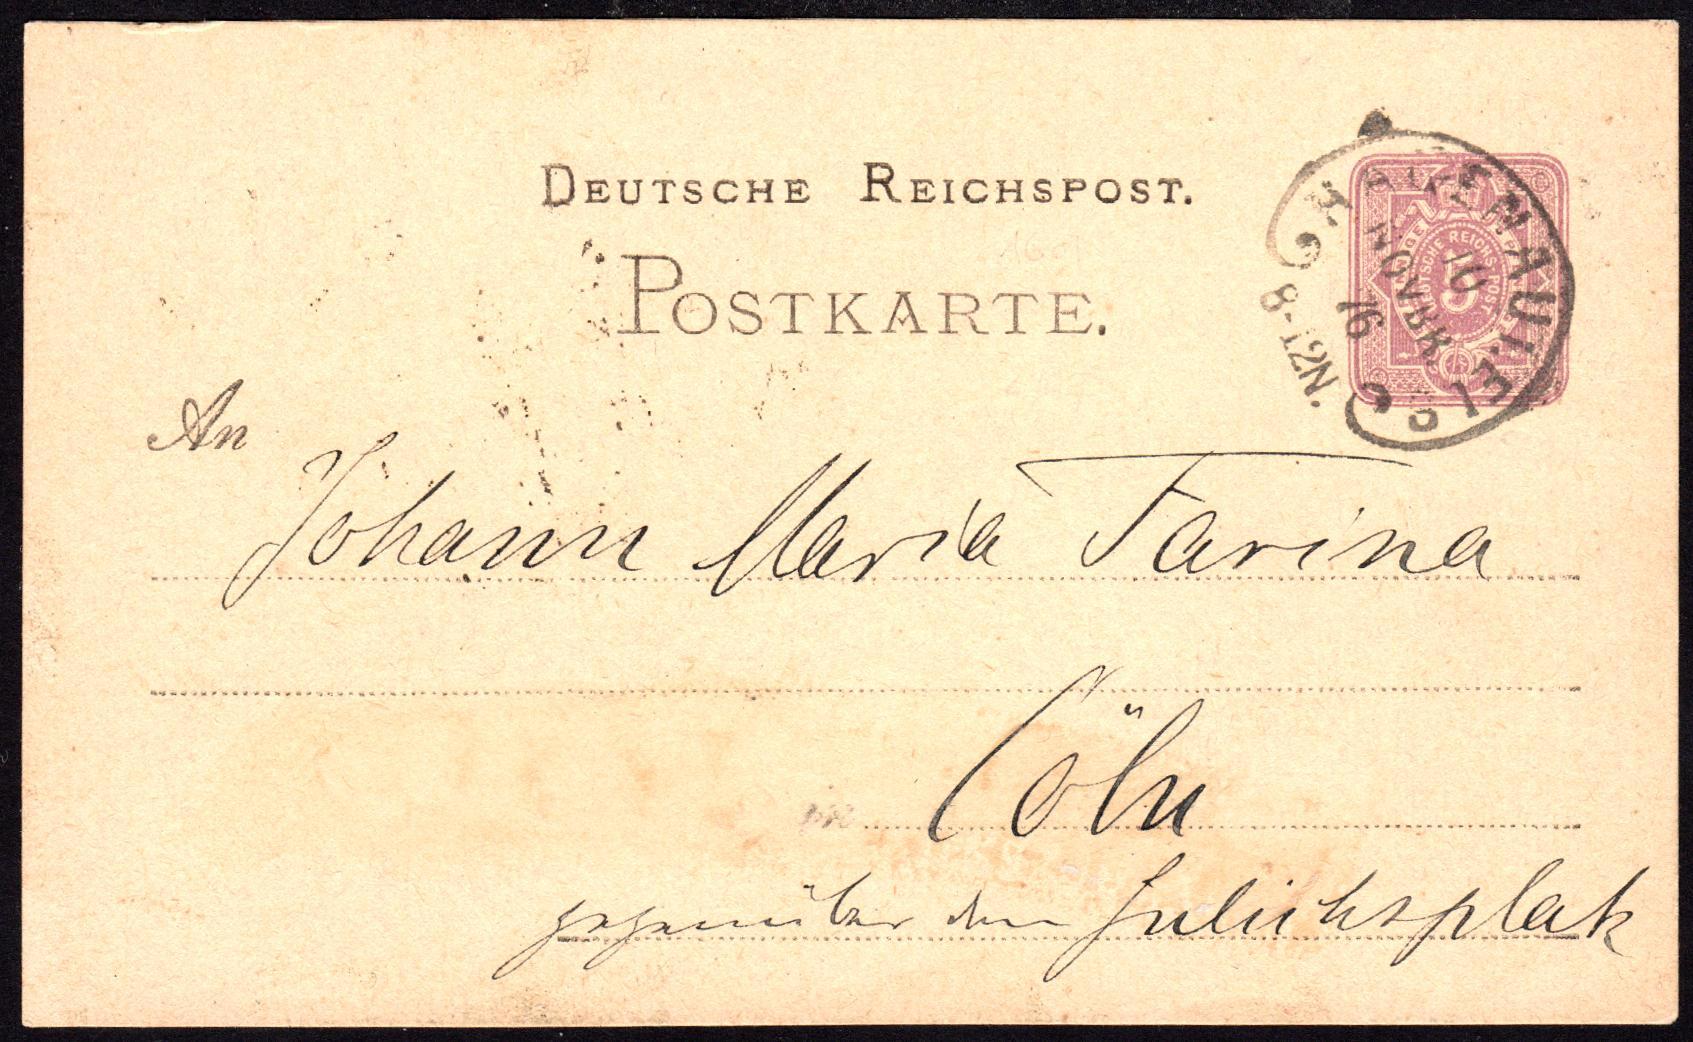 DEUTSCHE REICHSPOST.
POSTKARTE.
HAGENAU I. ELS
16
NOVBR.
76
8-12N.
DEUTSCHE REICHS POST
5
An
Johann Maria Farina
Cöln
gegenüber dem Julichsplatz